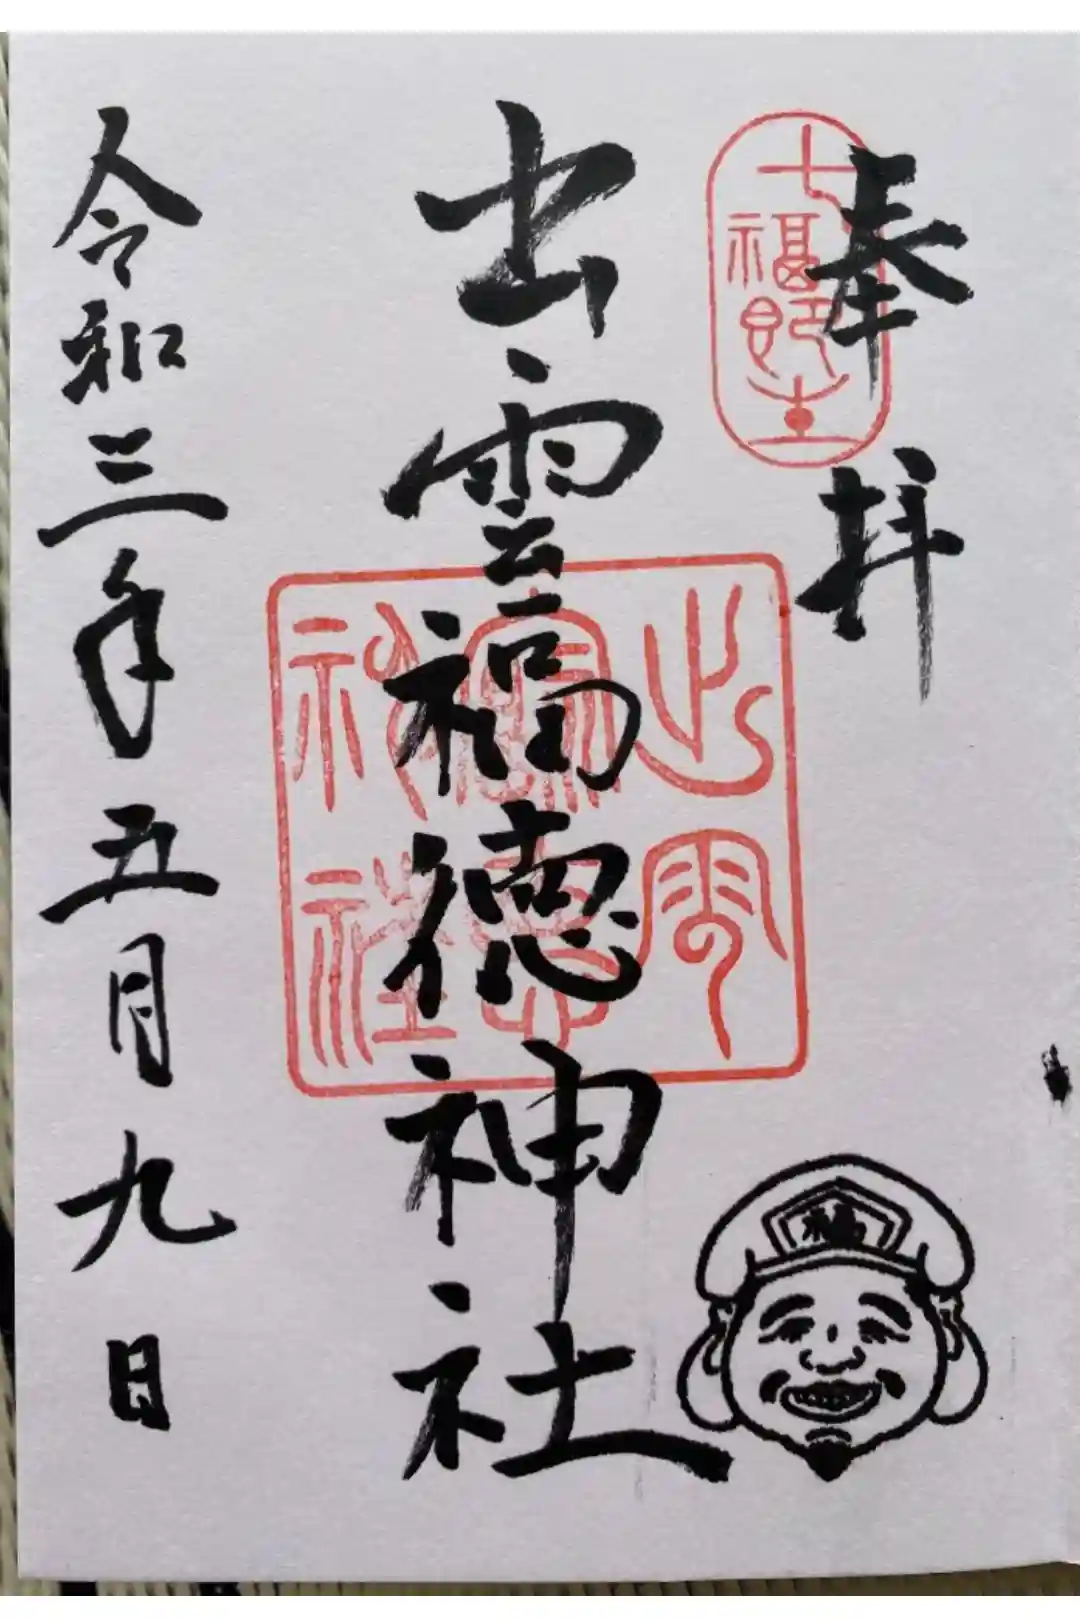 七福即生
奉拝
出雲福徳神社
出雲
神社
令和三年五月九日
福